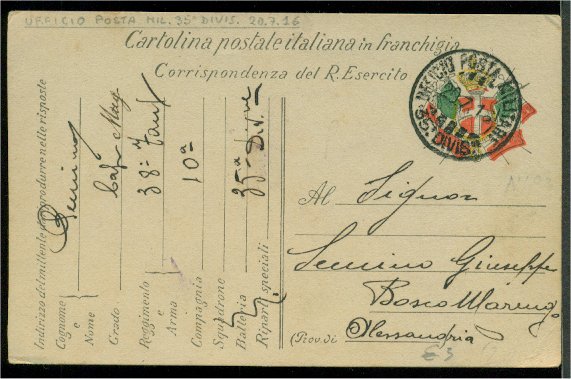 UFFICIO POSTA MIL. 35ª DIVIS. 20.7.16
Cartolina postale italiana in franchigia
Corrispondenza del R. Esercito
UFFICIO POSTA MILITARE
35ª DIVIS
Indirizzo del mittente da riprodurre nelle risposte
Cognome e Nome Semino
Grado Cap. Mag
Reggimento e Arma 38º Fant
Compagnia 10ª
Squadrone
Batteria
Riparti speciali 35ª Div
Al Signor
Semino Giuseppe
Bosco Marengo
(Prov. di Alessandria